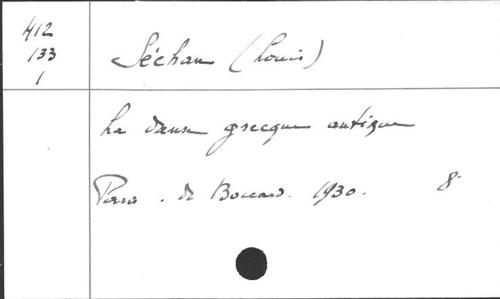 412
133
1
Séchan (Louis)
La danse grecque antique
Paris. de Boccard. 1930. 8°